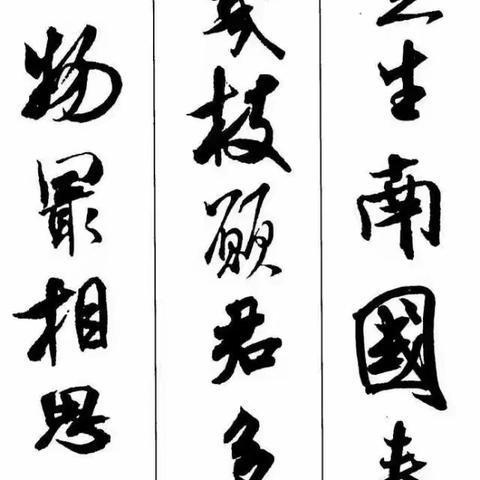 生南國春
枝願君多
物最相思